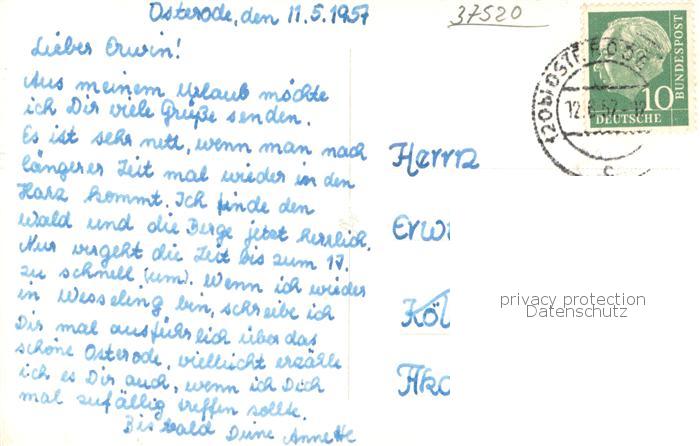 Osterode, den 11.5.1957
37520
Lieber Erwin!
Aus meinem Urlaub möchte
ich Dir viele Grüße senden.
Es ist sehr nett, wenn man nach
längerer Zeit mal wieder in den
Harz kommt. Ich finde den
Wald und die Berge jetzt herrlich.
Nur vergeht die Zeit bis zum 17.
zu schnell (um). Wenn ich wieder
in Wesseling bin, schreibe ich
Dir mal ausführlich über das
schöne Osterode, vielleicht erzähle
ich es Dir auch, wenn ich Dich
mal zufällig treffen sollte.
Bis bald Deine Annette
Herrn
Erwi
Köl
DEUTSCHE
BUNDESPOST
10
privacy protection
Datenschutz